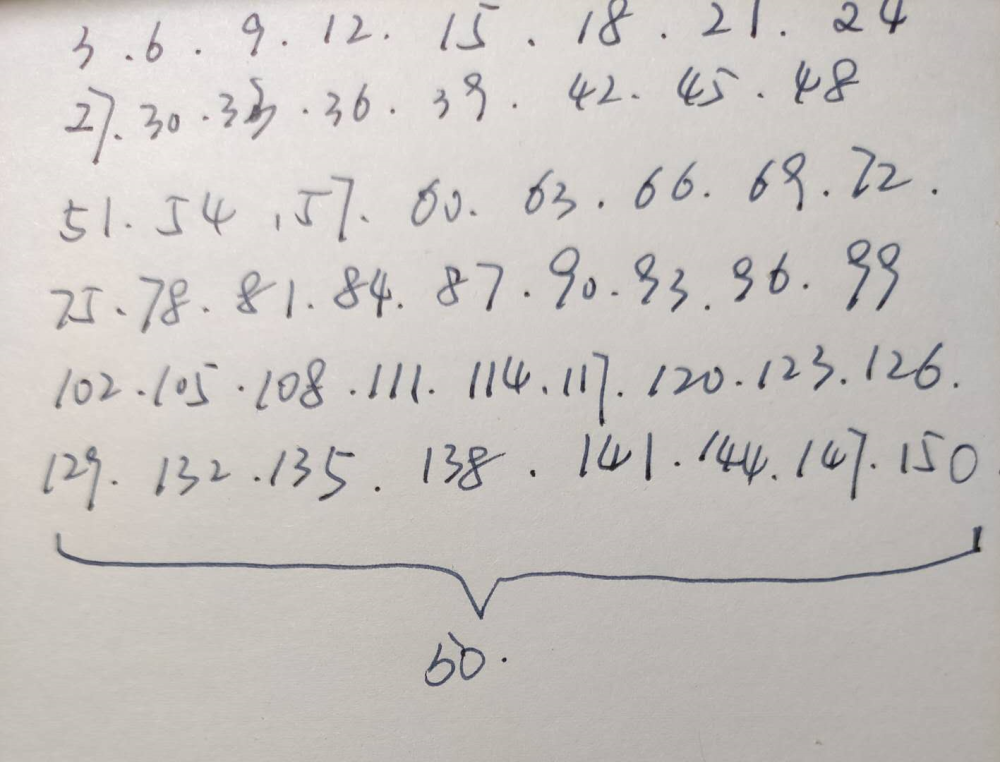 3 . 6 . 9 . 12 . 15 . 18 . 21 . 24
27 . 30 . 33 . 36 . 39 . 42 . 45 . 48
51 . 54 . 57 . 60 . 63 . 66 . 69 . 72 .
75 . 78 . 81 . 84 . 87 . 90 . 93 . 96 . 99
102 . 105 . 108 . 111 . 114 . 117 . 120 . 123 . 126 .
129 . 132 . 135 . 138 . 141 . 144 . 147 . 150
50 .